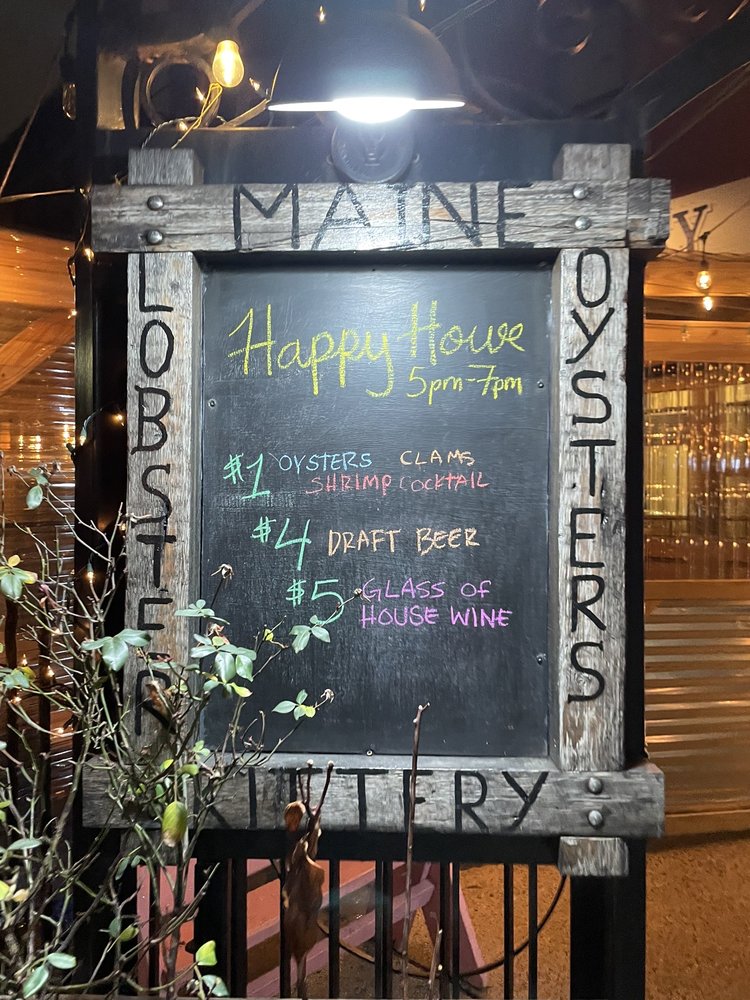 MAINE
LOBSTER
OYSTERS
Happy Houre
5pm-7pm
$1 OYSTERS CLAMS
SHRIMP COCKTAIL
$4 DRAFT BEER
$5 GLASS OF
HOUSE WINE
KITTERY
Y